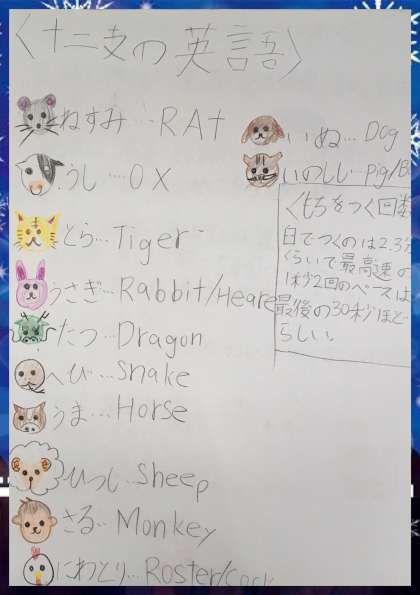 〈十二支の英語〉
ねずみ…RAt
うし…OX
とら…Tiger
うさぎ…Rabbit/Heare
たつ…Dragon
へび…Snake
うま…Horse
ひつじ…Sheep
さる…Monkey
にわとり…Roster/Cock
いぬ…Dog
いのしし…pig/
〈もちをつく回数
臼でつくのは2.3分
くらいで最高速の
1秒2回のペースは
最後の30秒ほど
らしい。